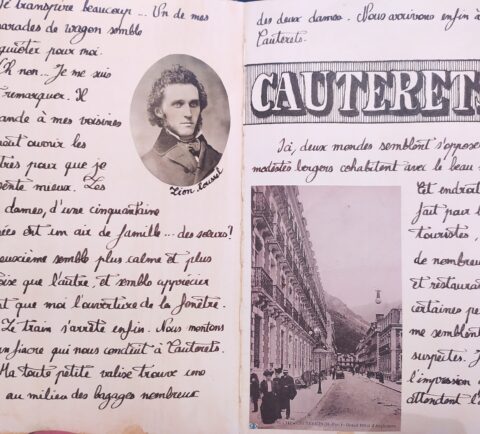 transpire beaucoup... Un de mes
arades de wagon semble
quiéter pour moi.
Oh non. Je me suis
remarquer. Il
ande à mes voisines
ouvrir les
tres pour que je
sente mieux. Les
dames, d'une cinquantaine
ées ont un air de famille... des sœurs?
euxième semble plus calme et plus
oise que l'autre, et semble apprécier
t que moi l'ouverture de la fenêtre.
Le train s'arrête enfin. Nous montons
fiacre qui nous conduit à Cauterets.
Ma toute petite valise trouve
au milieu des bagages nombreux
Léon
des deux dames. Nous arrivons enfin à
Cauterets.
CAUTERETS
Ici, deux mondes semblent s'opposer
modestes bergers cohabitent avec le beau
Cet endroit
fait pour l
touristes,
de nombreux
et restaura
certaines pe
me semblent
suspectes. J
l'impression
attendent l'a
CAUTERETS Grand Hôtel d'Angleterre